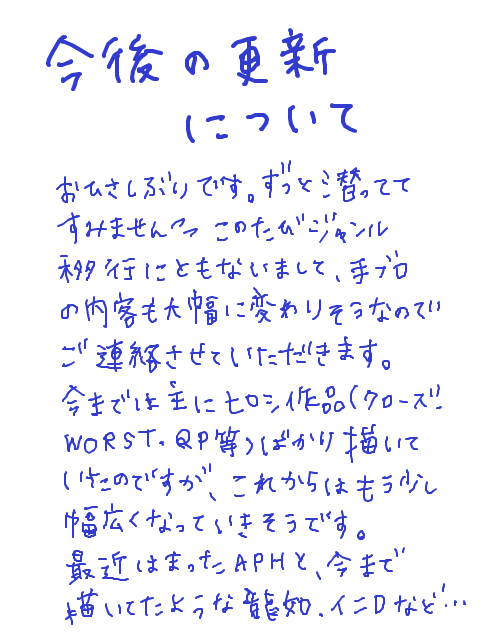 今後の更新
について
おひさしぶりです。ずっと潜ってて
すみません〜〜 このたびジャンル
移行にともないまして、手ブロ
の内容も大幅に変わりそうなので
ご連絡させていただきます。
今までは主にヒロシ作品(クローズ!
WORST.QP等)ばかり描いて
いたのですが、これからはもう少し
幅広くなっていきそうです。
最近はまったAPHと、今まで
描いてたような龍如.イニDなど…